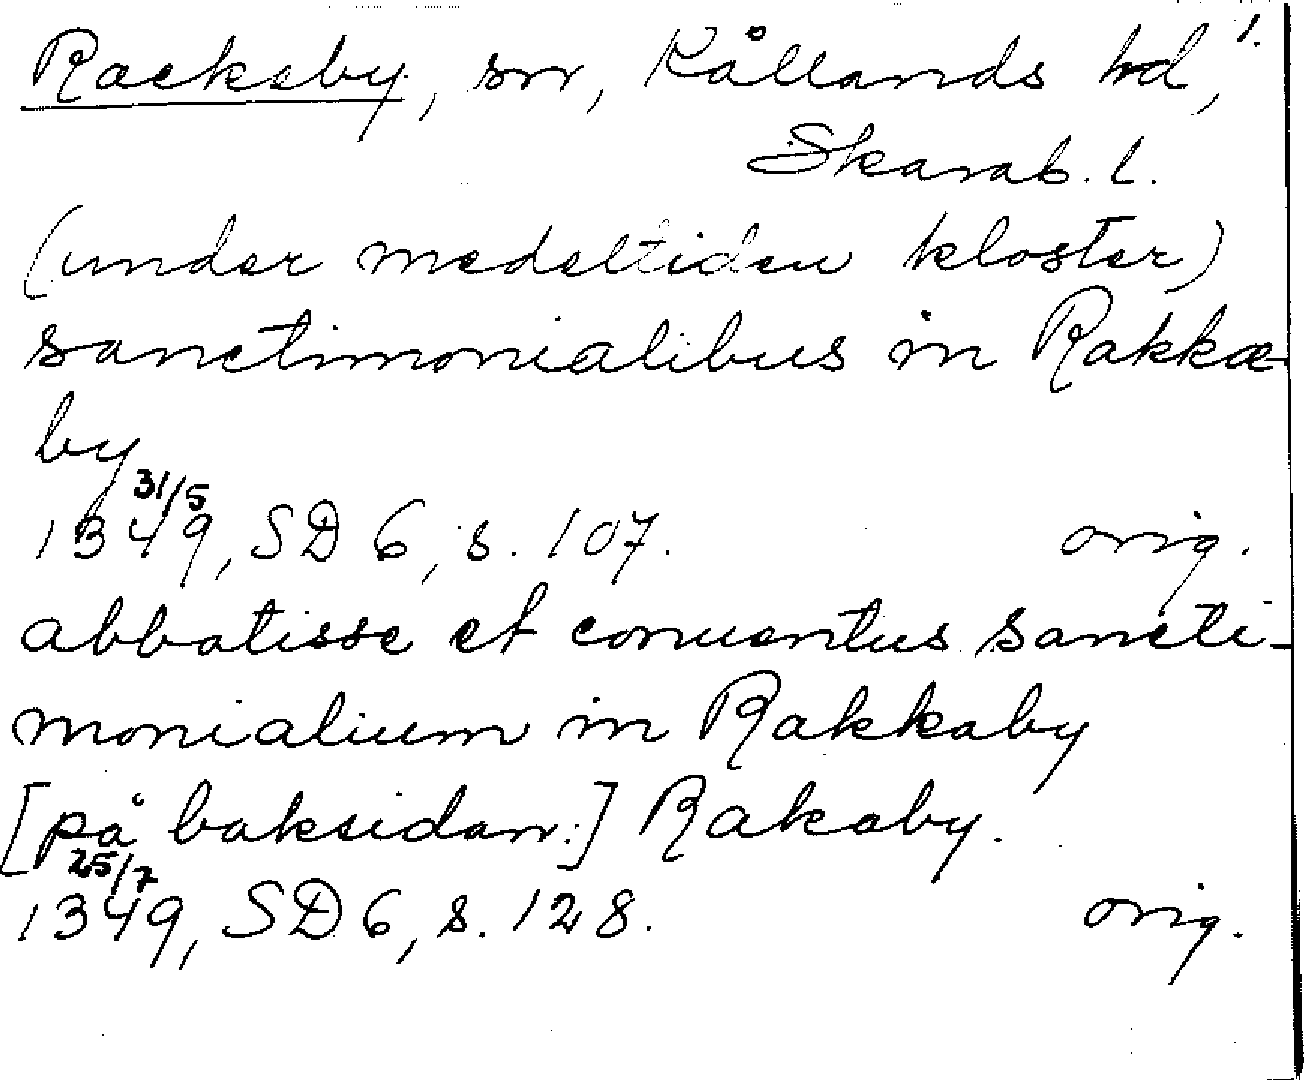 Rackeby, sn, Kållands hd, 1.
Skarab. l.
(under medeltiden kloster)
sanctimonialibus in Rakkæ-
by
31/5
1349, SD 6, s. 107. orig.
abbatisse et conuentus sancti-
monialium in Rakkaby
[på baksidan:] Rakaby.
25/7
1349, SD 6, s. 128. orig.